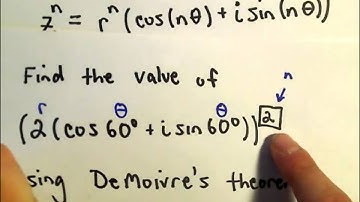 zⁿ = rⁿ (cos(nθ) + i sin(nθ))
Find the value of
n
r θ θ
(2(cos 60° + i sin 60°))²
sing DeMoivre's theorem